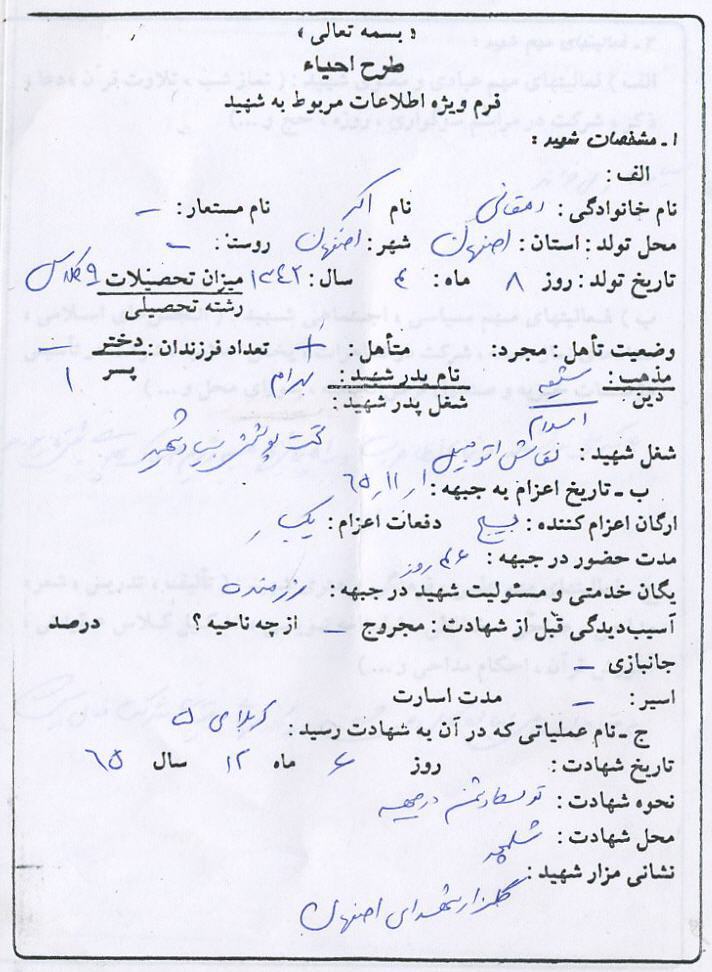 « بسمه تعالی »
طرح احیاء
فرم ویژه اطلاعات مربوط به شهید
۱ - مشخصات شهید :
الف :
نام خانوادگی : دهقانی نام اکبر نام مستعار : -
محل تولد : استان : اصفهان شهر : اصفهان روستا : -
تاریخ تولد : روز ۸ ماه : ۴ سال : ۱۳۴۲ میزان تحصیلات ۹ کلاس
رشته تحصیلی
وضعیت تأهل : مجرد : متأهل : + تعداد فرزندان : دختر -
پسر ۱
مذهب : شیعه نام پدر شهید : بهرام
دین : اسلام شغل پدر شهید :
شغل شهید : نقاش اتومبیل تحت پوشش بنیاد شهید
ب - تاریخ اعزام به جبهه : ۶۵/۱۱/۱
ارگان اعزام کننده : بسیج دفعات اعزام : یکبار
مدت حضور در جبهه : روز
یگان خدمتی و مسئولیت شهید در جبهه : رزمنده
آسیب‌دیدگی قبل از شهادت : مجروح - از چه ناحیه ؟ درصد
جانبازی -
اسیر : - مدت اسارت
ج - نام عملیاتی که در آن به شهادت رسید : کربلای ۵
تاریخ شهادت : روز ۶ ماه ۱۲ سال ۶۵
نحوه شهادت : توسط دشمن در جبهه
محل شهادت : شلمچه
نشانی مزار شهید :
گلزار شهدای اصفهان